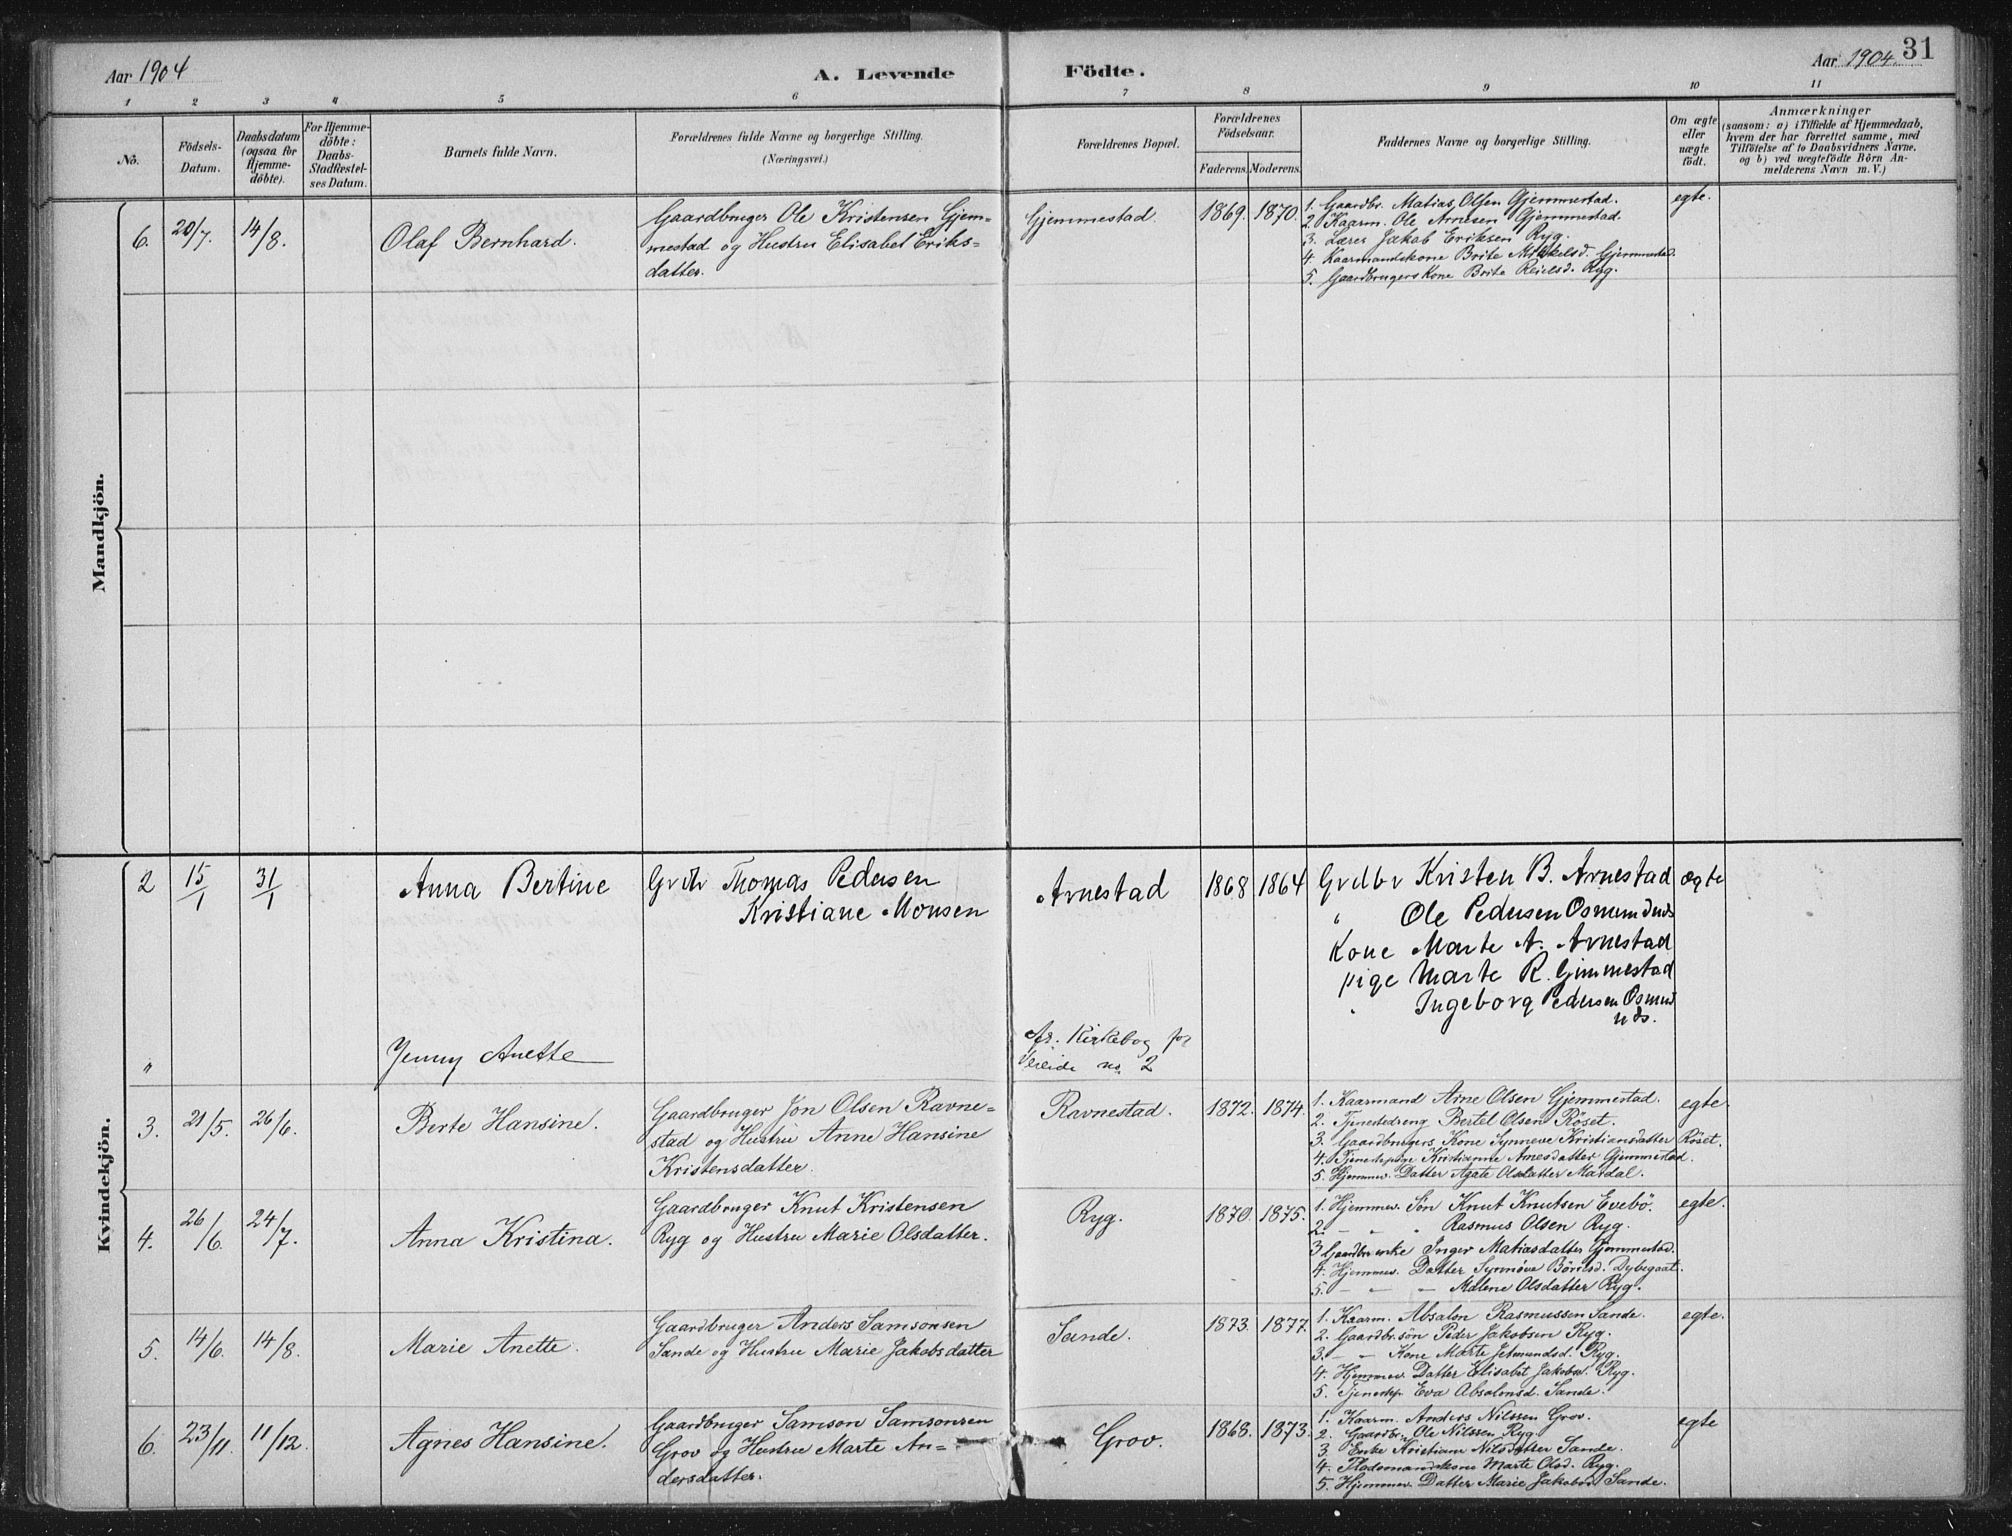 Aar 1904
A. Levende Födte.
Aar 1904. 31
1 2 3 4 5 6 7 8 9 10 11
No.
Födsels-
Datum.
Daabsdatum
(ogsaa for
Hjemme-
döbte).
For Hjemme-
döbte:
Daabs-
Stadfæstel-
ses Datum.
Barnets fulde Navn.
Forældrenes fulde Navne og borgerlige Stilling.
(Næringsvei.)
Forældrenes Bopæl.
Forældrenes
Födselsaar.
Faderens. Moderens.
Faddernes Navne og borgerlige Stilling.
Om ægte
eller
uægte
födt.
Anmærkninger
(saasom: a) i Tilfælde af Hjemmedaab,
hvem der har forrettet samme, med
Tilföielse af to Daabsvidners Navne,
og b) ved uægtefödte Börn An-
melderens Navn m. V.)
Mandkjön.
6. 20/7. 14/8.
Olaf Bernhard.
Gaardbruger Ole Kristensen Gjem-
mestad og Hustru Elisabet Eriks-
datter.
Gjemmestad.
1869. 1870.
1. Gaardbr. Matias Olsen Gjemmestad.
2. Kaarm. Ole Arnesen Gjemmestad.
3. Lærer Jakob Eriksen Ryg.
4. Kaarmandskone Brite Mikkelsd. Gjemmestad.
5. Gaardbrugers Kone Brite Reielsd. Ryg.
egte.
Kvindekjön.
2 15/1 31/1
Anna Bertine
Grdbr Thomas Pedersen
Kristiane Monsen
Arnestad
1868 1864
Grdbr Kristen B. Arnestad
" Ole Pedersen Osmunds
Kone Marte A. Arnestad
pige Marte R. Gimmestad
" Ingeborg Pedersen Osmu
nds.
ægte
"
Jenny Anette
fr. Kirkebog for
Vereide no. 2
3. 21/5. 26/6.
Berte Hansine.
Gaardbruger Jon Olsen Ravne-
stad og Hustru Anne Hansine
Kristensdatter.
Ravnestad.
1872. 1874.
1. Kaarmand Arne Olsen Gjemmestad.
2. Tjenestedreng Bertel Olsen Röset.
3. Gaardbrugers Kone Synneve Kristiansdatter Röset.
4. Kristianne Arnesdatter Gjemmestad.
5. Hjemmev. Datter Agate Olsdatter Mardal.
egte.
4. 26/6. 24/7.
Anna Kristina.
Gaardbruger Knut Kristensen
Ryg og Hustru Marie Olsdatter.
Ryg.
1870. 1875.
1. Hjemmev. Sön Knut Knutsen Evebö.
2. - " Rasmus Olsen Ryg.
3 Gaardbr enke Inger Matiasdatter Gjemmestad.
4. Hjemmev. Datter Synnöve Dybegaat.
5. - - - Malene Olsdatter Ryg.
egte.
5. 14/6. 14/8.
Marie Anette.
Gaardbruger Anders Samsonsen
Sande og Hustru Marie Jakobsdatter
Sande.
1873. 1877.
1. Kaarm. Absalon Rasmussen Sande.
2. Gaardbr.sön Peder Jakobsen Ryg.
3. - " Kone Marte Jetmundsd. Ryg.
4. Hjemmev. Datter Elisabet Jakobsd. Ryg.
5. Tjenestep. Eva Absalonsd. Sande.
egte.
6. 23/11. 11/12.
Agnes Hansine.
Gaardbruger Samson Samsonsen
Grov og Hustru Marte An-
dersdatter.
Grov.
1868. 1873.
1. Kaarm. Anders Nilssen Grov.
2. Gaardbr. Ole Nilssen Ryg.
3. Enke Kristiane Nilsdatter Sande.
4. Pladsmandskone Marte Olsd. Ryg.
5. Hjemmev. Datter Marie Jakobsd. Sande.
egte